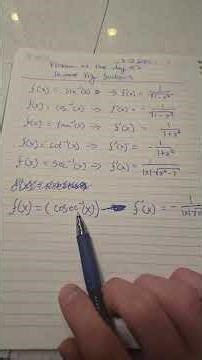 Problem of the day
Inverse Trig functions
f(x) = sin⁻¹(x) ⇒ f'(x) = 1/√1-x²
f(x) = cos⁻¹(x) ⇒ f'(x) = -1/√1-x²
f(x) = tan⁻¹(x) ⇒ f'(x) = 1/1+x²
f(x) = cot⁻¹(x) ⇒ f'(x) = -1/1+x²
f(x) = sec⁻¹(x) ⇒ f'(x) = 1/|x|√x²-1
f(x) = (cosec⁻¹(x)) → f'(x) = -1/|x|√